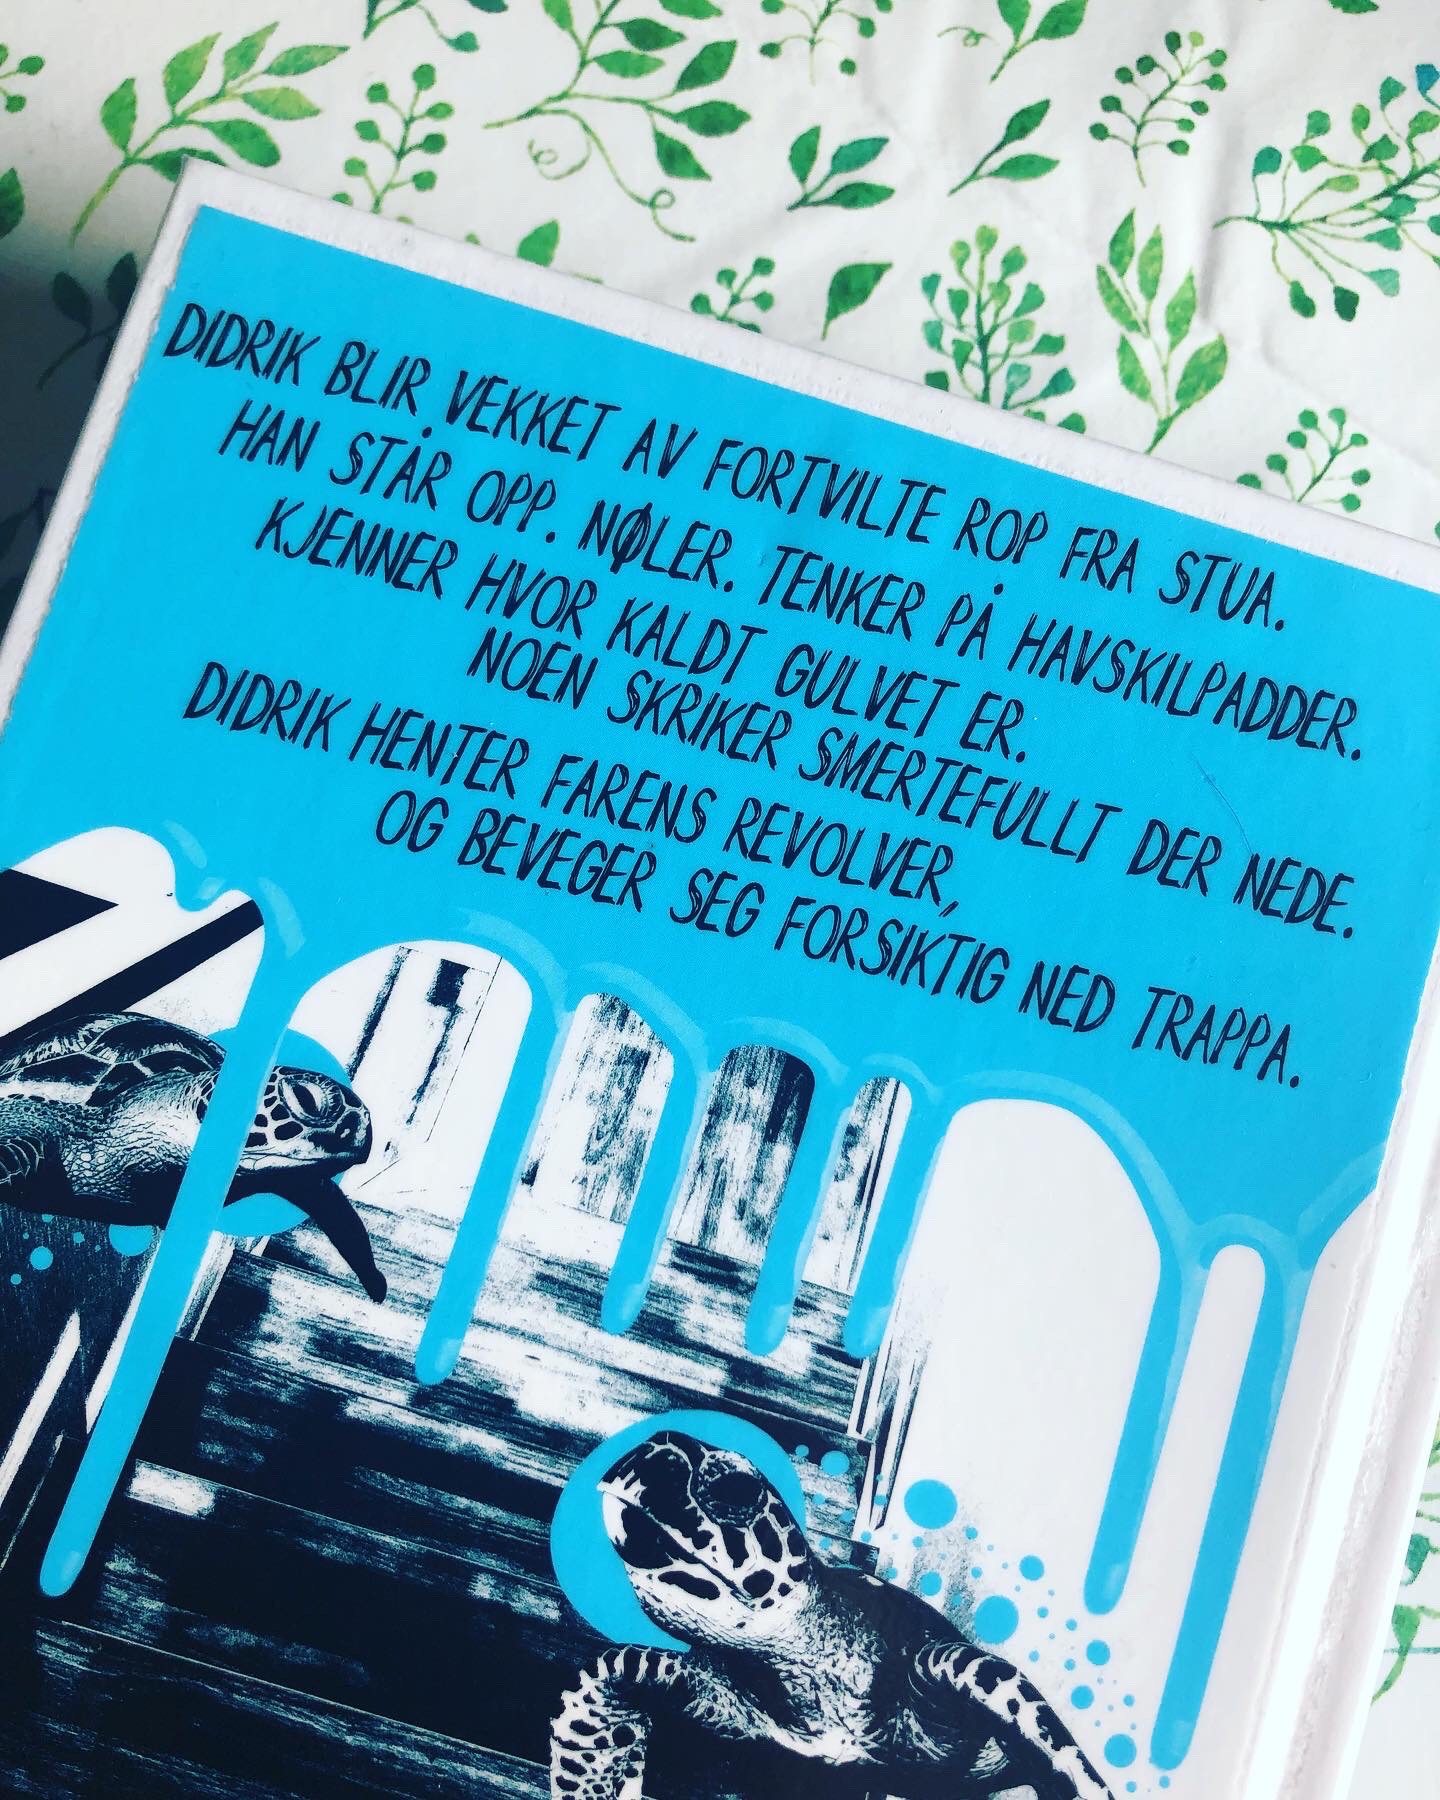 DIDRIK BLIR VEKKET AV FORTVILTE ROP FRA STUA.
HAN STÅR OPP. NØLER. TENKER PÅ HAVSKILPADDER.
KJENNER HVOR KALDT GULVET ER.
NOEN SKRIKER SMERTEFULLT DER NEDE.
DIDRIK HENTER FARENS REVOLVER,
OG BEVEGER SEG FORSIKTIG NED TRAPPA.